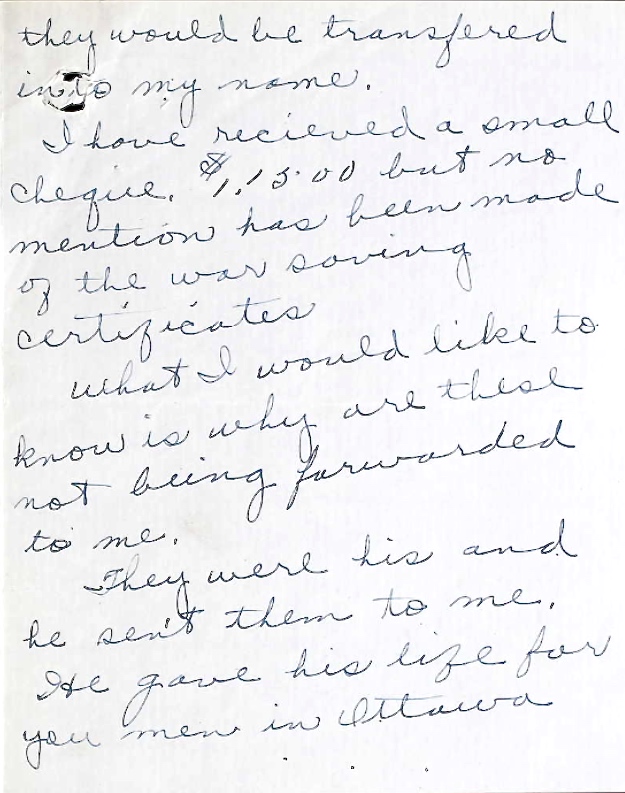 they would be transfered
into my name.
I have recieved a small
cheque. $1.13.00 but no
mention has been made
of the war saving
certificates
what I would like to
know is why are these
not being forwarded
to me.
They were his and
he sent them to me.
He gave his life for
you men in Ottawa